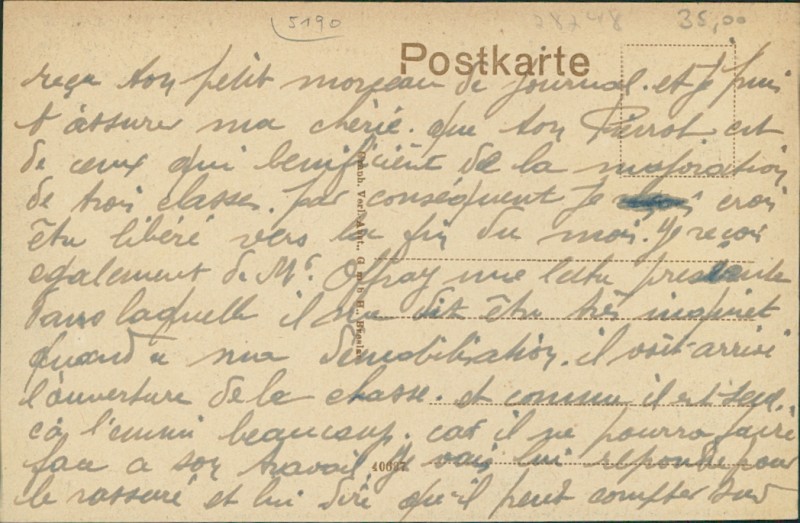 5190
28248
35,00
Postkarte
reçu ton petit morceau de journal. et je puis
t assurer ma chérie. que ton Pierrot est
de ceux qui beneficient de la majoration
de trois classes. par conséquent Je crois
être libéré vers la fin du mois. Je reçois
egalement de Mr. une lettre pressante
dans laquelle il me dit être très inquiet
quand a ma démobilisation. il voit arrivé
l'ouverture de la chasse. et comme il est seul.
ca l'ennui beaucoup. car il ne pourra faire
face a son travail. Je vais lui repondre pour
le rassuré et lui dire qu'il peut compter sur
40687